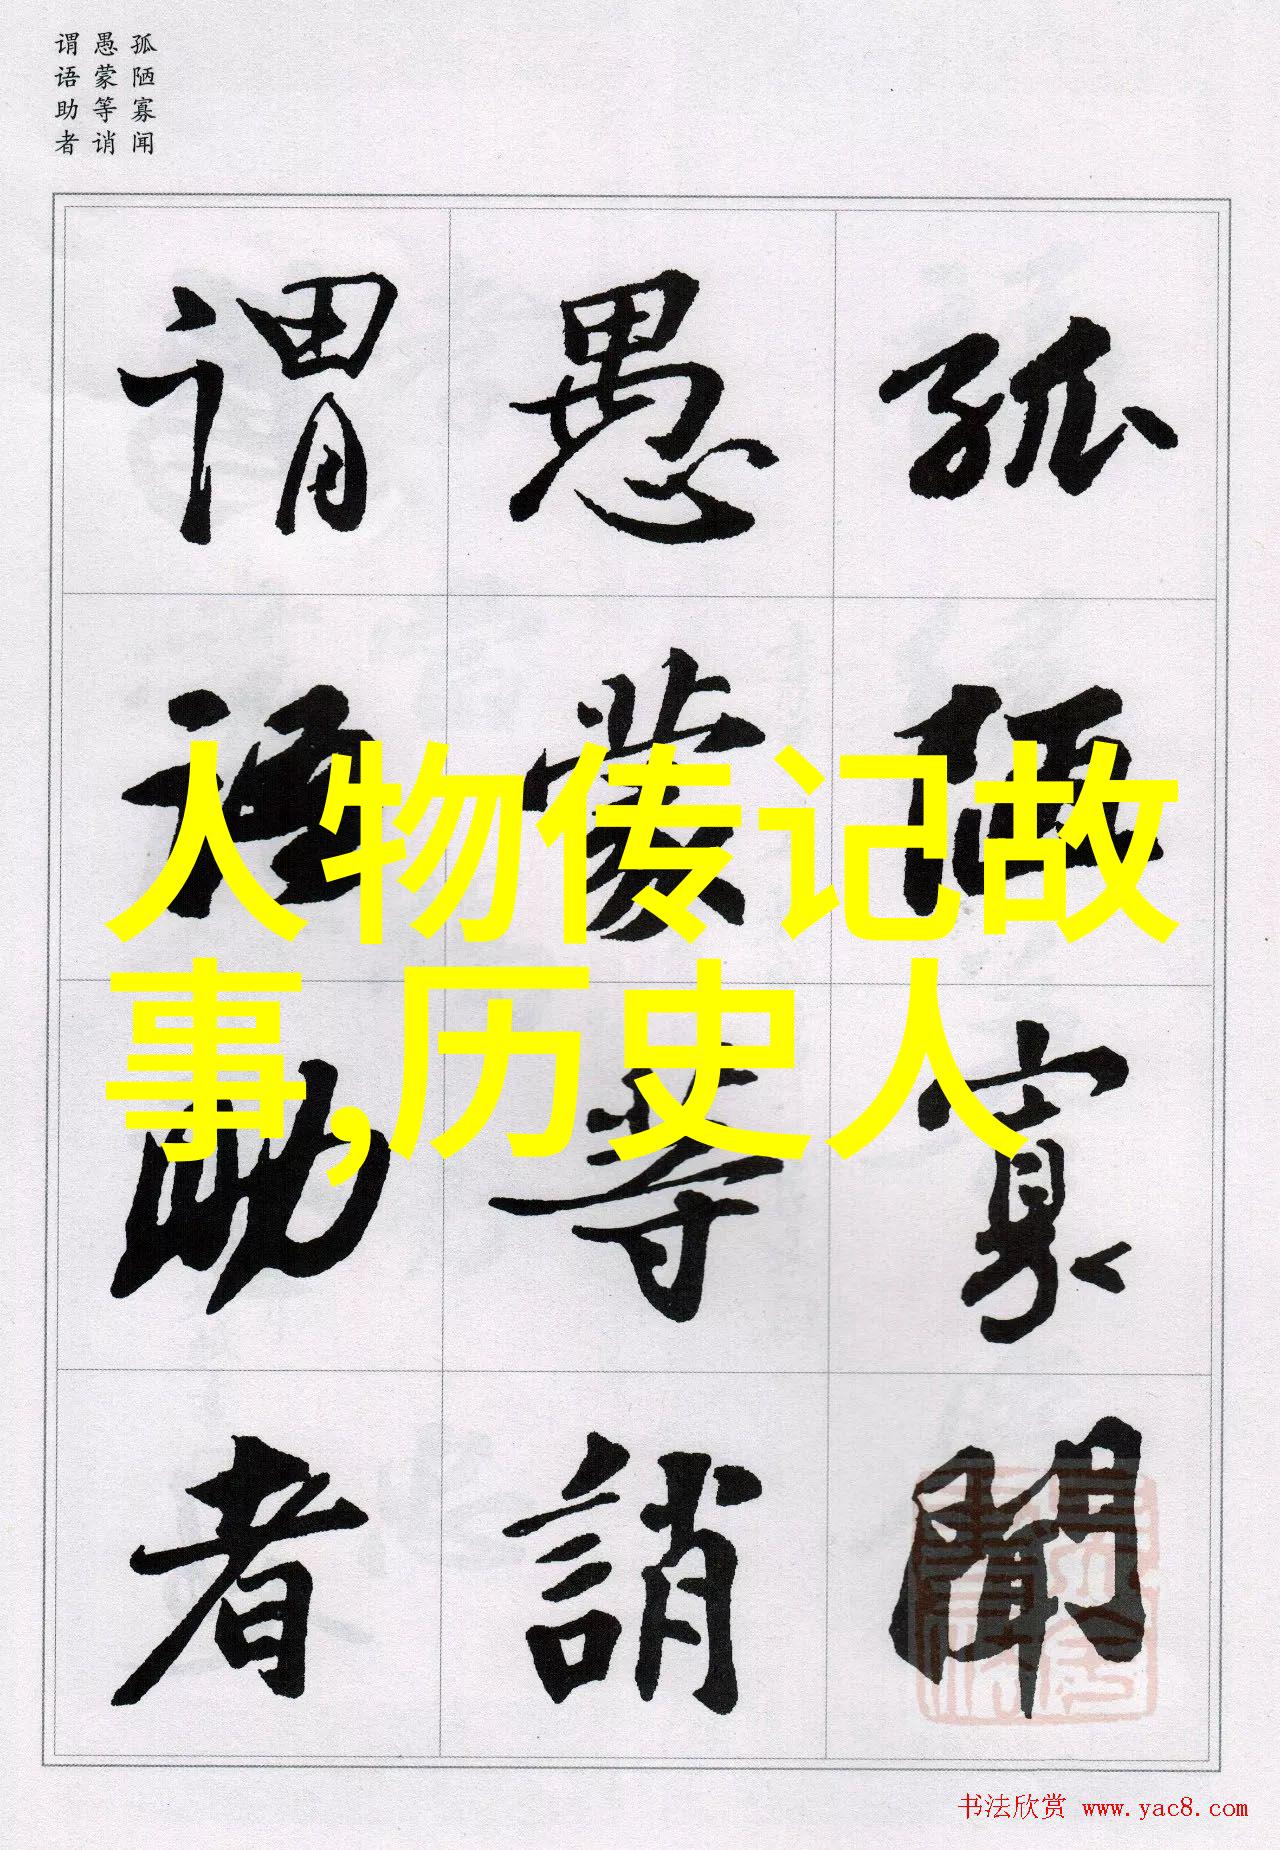 孤陋寡闻
愚蒙等诮
谓语助者
孤陋寡聞
愚蒙等誚
谓語助者
人物传记故
事,历史人
书法欣赏 www.yac8.com